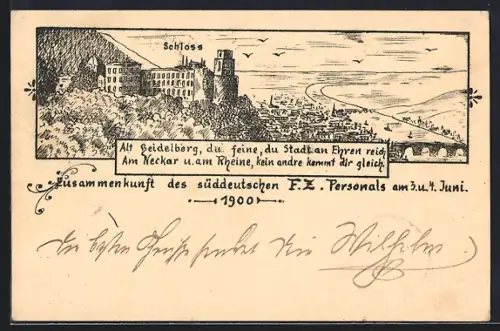 Schloss
Alt Heidelberg, du feine, du Stadt an Ehren reich
Am Neckar u. am Rheine, kein andre kommt dir gleich.
Zusammenkunft des süddeutschen F.Z. Personals am 3. u. 4. Juni.
1900
Die besten Grüße sendet Dir Wilhelm